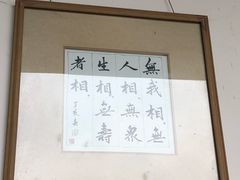 無我相無
人相無眾
生相無壽
者相